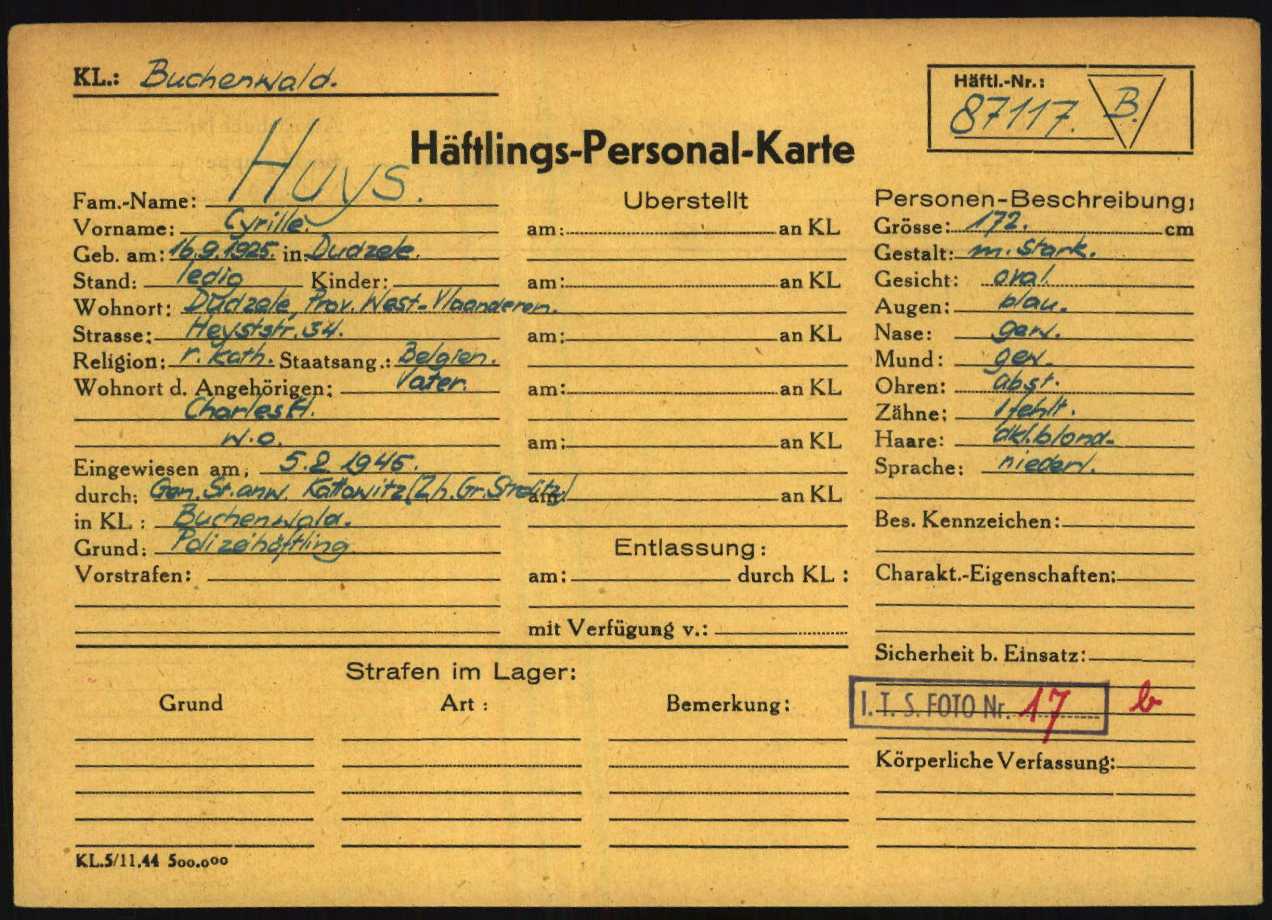 KL.: Buchenwald.
Häftl.-Nr.:
87117. B.
Häftlings-Personal-Karte
Fam.-Name: Huys.
Vorname: Cyrille.
Geb. am: 16.9.1925. in: Dudzele.
Stand: ledig Kinder:
Wohnort: Dudzele, Prov. West-Vlaanderen.
Strasse: Heyststr. 34.
Religion: r. kath. Staatsang.: Belgien.
Wohnort d. Angehörigen: Vater.
Charles H.
w.o.
Eingewiesen am: 5.2.1945.
durch: Gen. St. anw. Kattowitz (Zh. Gr. Strelitz)
in KL: Buchenwald.
Grund: Polizeihäftling
Vorstrafen:
Uberstellt
am: an KL
am: an KL
am: an KL
am: an KL
am: an KL
am: an KL
Entlassung:
am: durch KL:
mit Verfügung v.:
Personen-Beschreibung:
Grösse: 172. cm
Gestalt: m. stark.
Gesicht: oval.
Augen: blau.
Nase: gew.
Mund: gew.
Ohren: abst.
Zähne: 1 fehlt.
Haare: dkl. blond.
Sprache: niederl.
Bes. Kennzeichen:
Charakt.-Eigenschaften:
Sicherheit b. Einsatz:
I. T. S. FOTO Nr. 17 b
Körperliche Verfassung:
Strafen im Lager:
Grund Art: Bemerkung:
KL.5/11.44 500.000